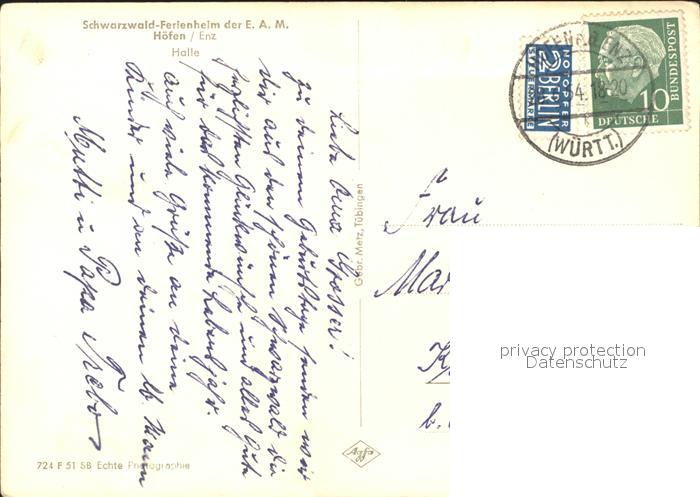 Schwarzwald-Ferienheim der E. A. M.
Höfen / Enz
Halle
Liebe Oma
zu deinem Geburtstage senden wir
dir aus dem schönen Schwarzwald die
herzlichsten Glückwünsche und alles Gute
für das kommende Lebensjahr.
Auch viele Grüße an deine
Kinder und an deinen lb. Mann
Mutti u Papa
724 F 51 SB Echte Photographie
Gebr. Metz, Tübingen
Agfa
NOTOPFER
2 BERLIN
STEUERMARKE
4. 18-20
(WÜRTT.)
10
DEUTSCHE
BUNDESPOST
Frau
Mar
b.
privacy protection
Datenschutz